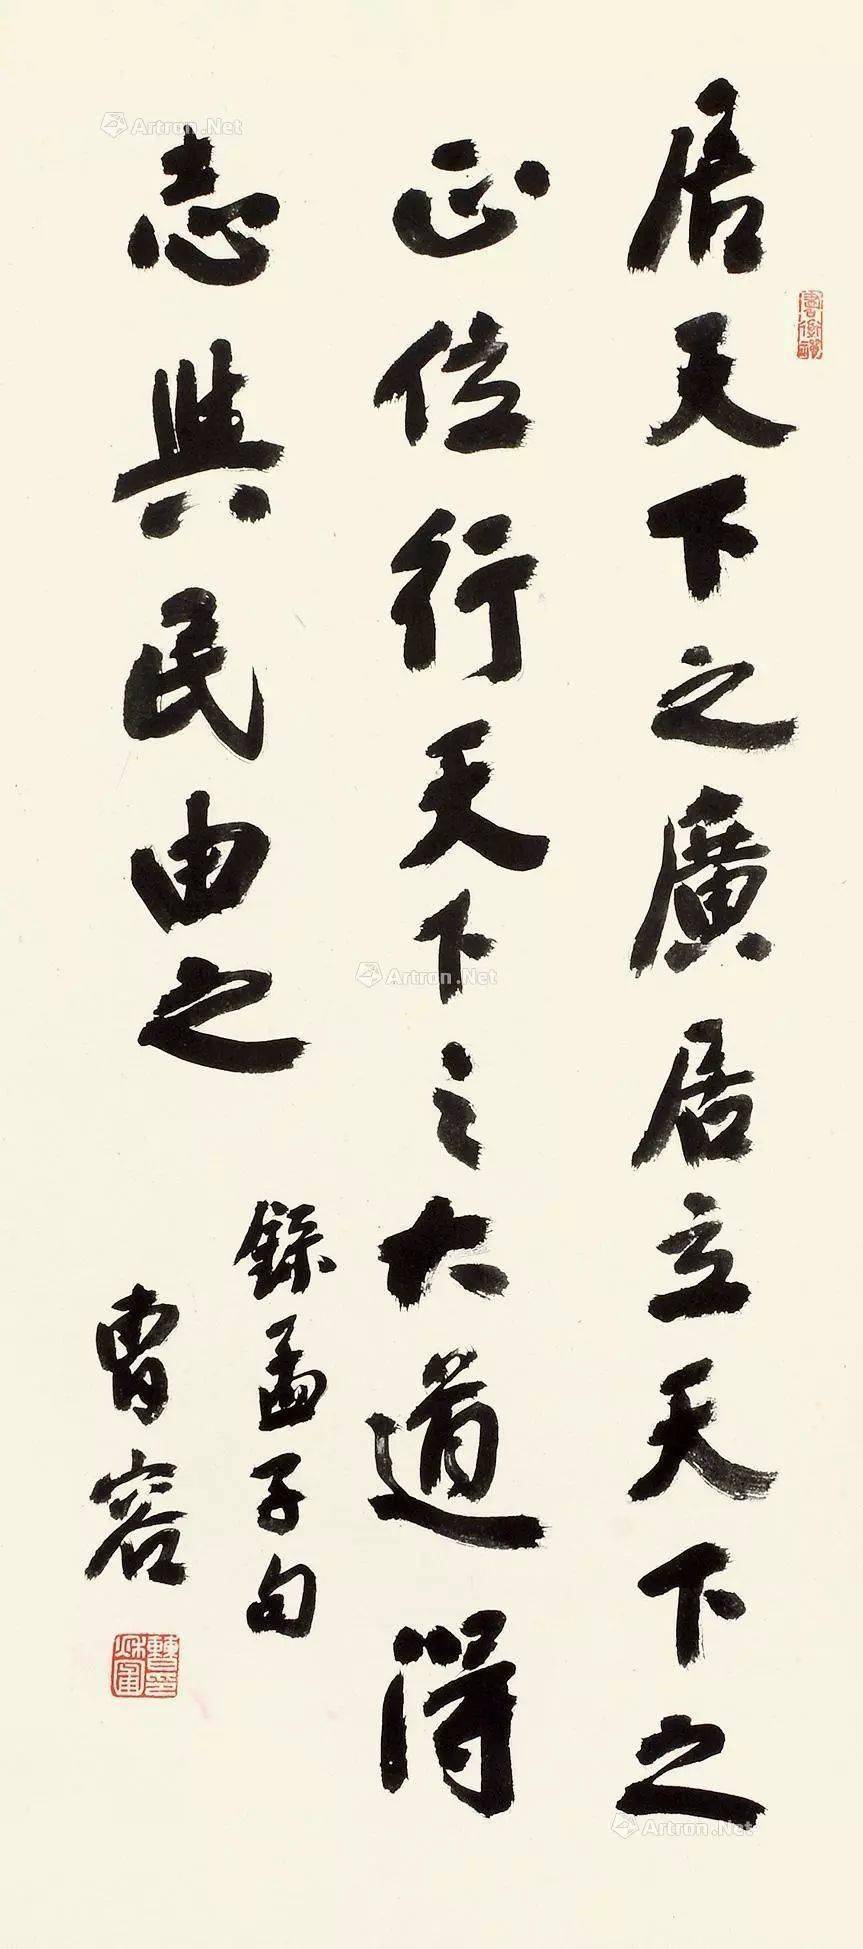 居天下之廣居立天下之
正位行天下之大道得
志與民由之
錄孟子句
曹容
Artron.Net
Artron.Net
Artron.Net